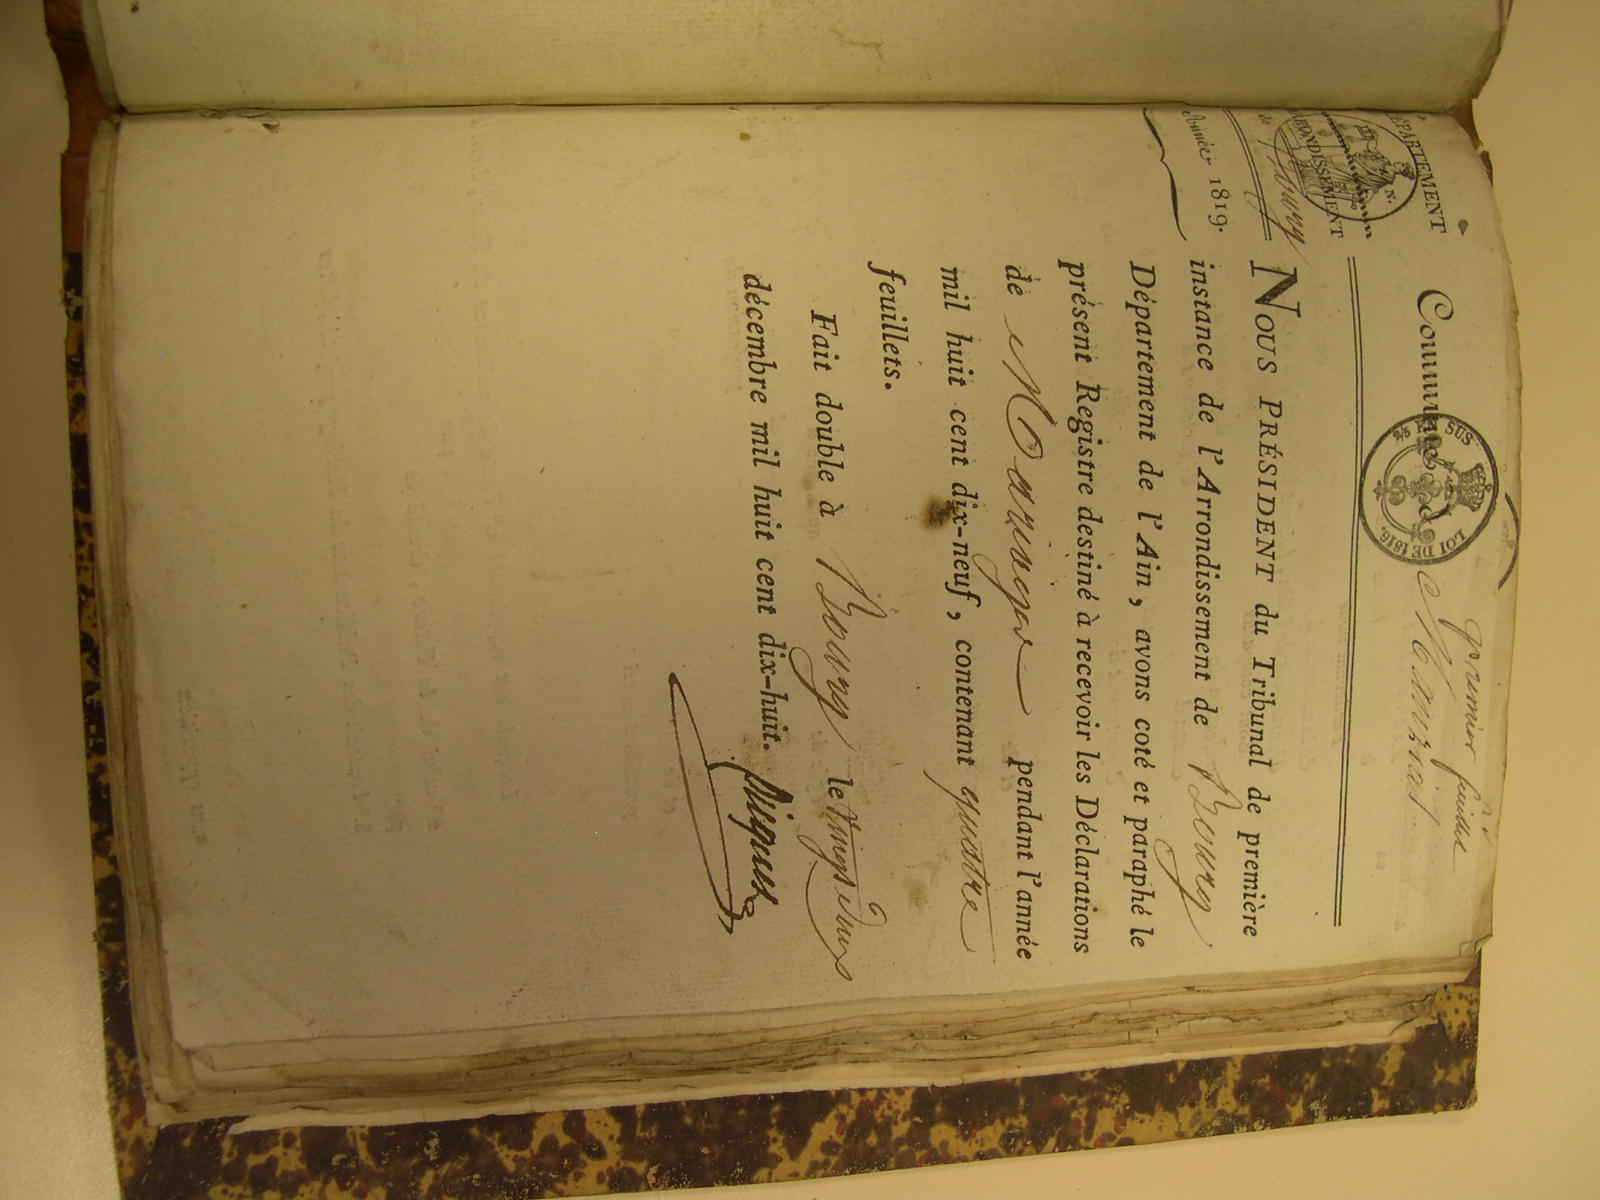 premier feuillet
DÉPARTEMENT
N.
ARRONDISSEMENT
de Bourg
Année 1819.
Commune de
2/5 EN SUS
LOI DE 1816.
NOUS PRÉSIDENT du Tribunal de première
instance de l'Arrondissement de Bourg
Département de l'Ain, avons coté et paraphé le
présent Registre destiné à recevoir les Déclarations
de Mariages pendant l'année
mil huit cent dix-neuf, contenant quatre
feuillets.
Fait double à Bourg le Vingt deux
décembre mil huit cent dix-huit.